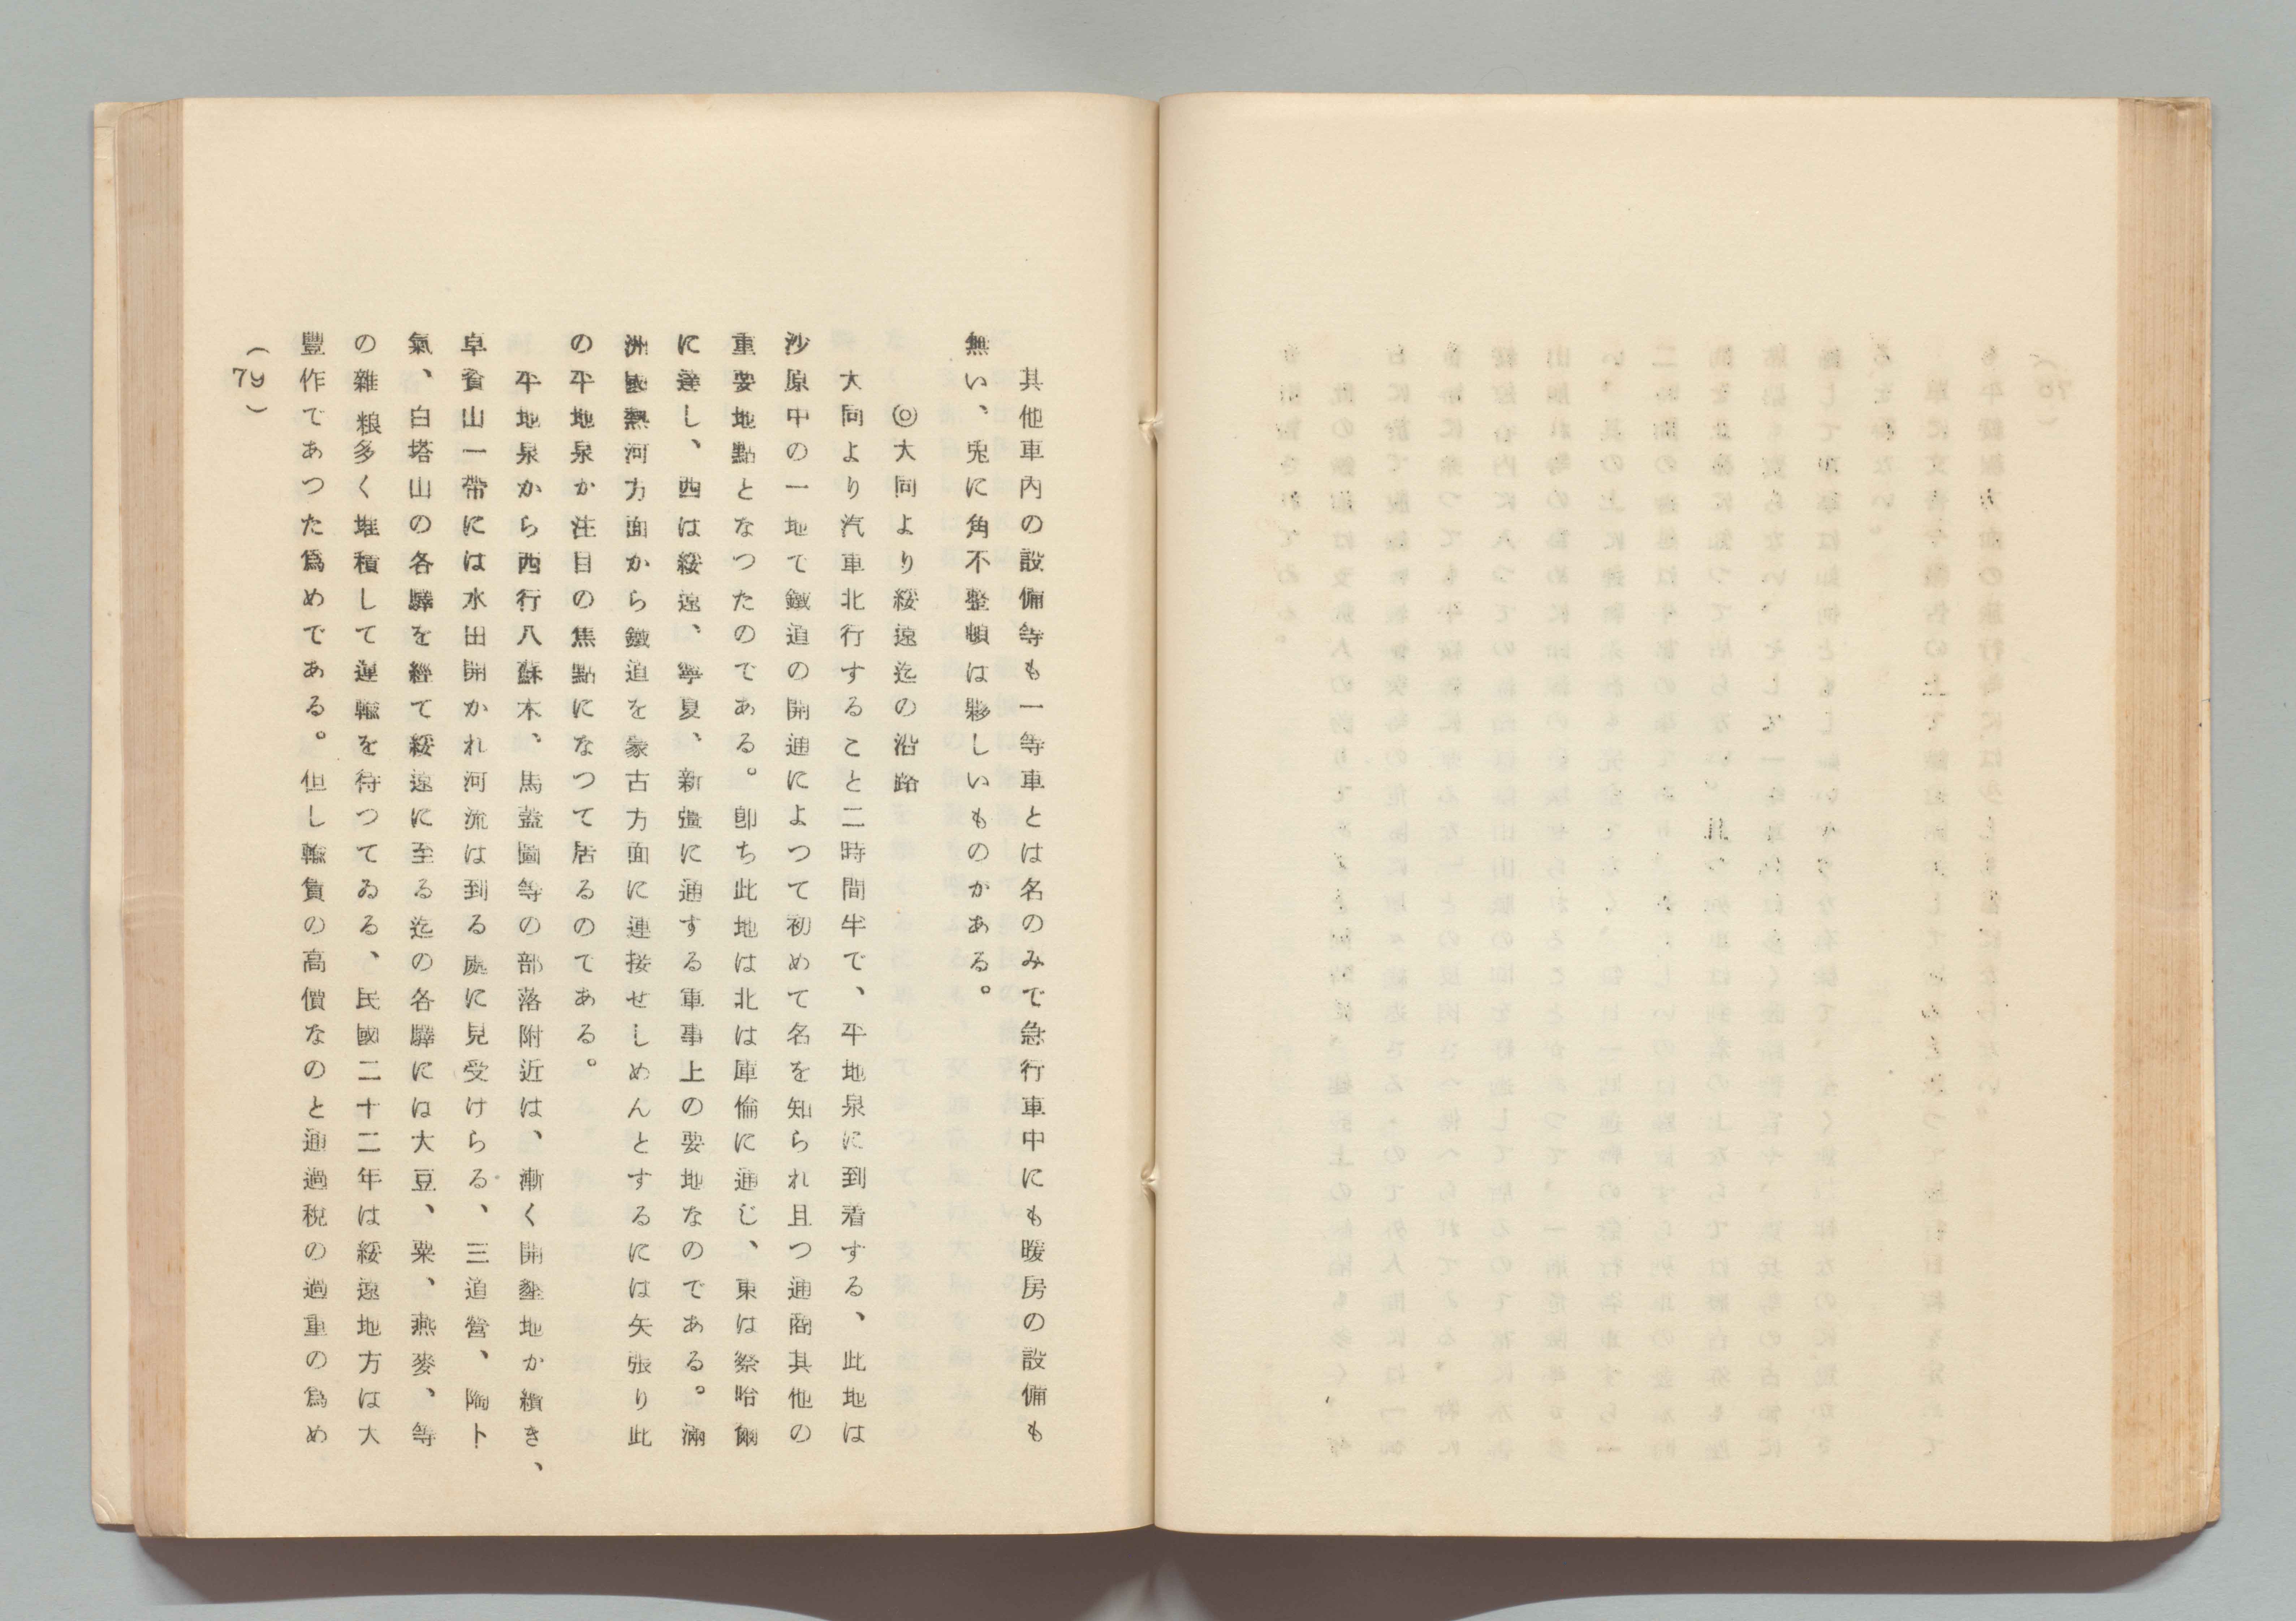 其他車內の設備等も一等車とは名のみで急行車中にも暖房の設備も
無い、兎に角不整頓は夥しいものかある。
◎大同より綏遠迄の沿路
大同より汽車北行すること二時間半で、平地泉に到着する、此地は
沙原中の一地て鐵道の開通によつて初めて名を知られ且つ通商其他の
重要地點となつたのである。卽ち此地は北は庫倫に通じ、東は察哈爾
に達し、西は綏遠、寧夏、新疆に通する軍事上の要地なのである。滿
洲國熱河方面から鐵道を蒙古方面に連接せしめんとするには矢張り此
の平地泉か注目の焦點になつて居るのてある。
平地泉から西行八蘇木、馬蓋圖等の部落附近は、漸く開墾地か續き、
卓資山一帶には水田開かれ河流は到る處に見受けらる、三道營、陶ト
氣、白塔山の各驛を經て綏遠に至る迄の各驛には大豆、粟、燕麥、等
の雜粮多く堆積して運輸を待つてゐる、民國二十二年は綏遠地方は大
豐作であつた爲めである。但し輸負の高價なのと通過稅の過重の爲め
(79)